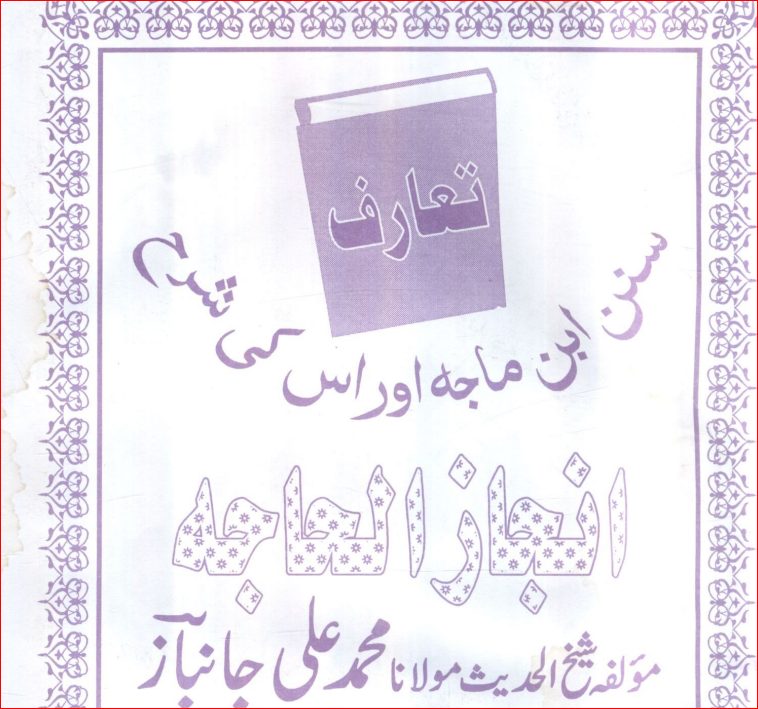 تعارف
سنن ابن ماجه اور اس کی شرح
انجاز الحاجه
مؤلفه شیخ الحدیث مولانا محمد علی جانباز